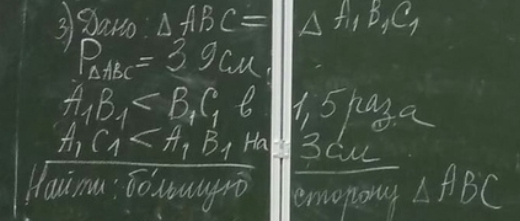 3) Дано: △ABC = △A₁B₁C₁
P△ABC = 39см.
A₁B₁ < B₁C₁ в 1,5 раза
A₁C₁ < A₁B₁ на 3см
Найти: бо́льшую сторону △ABC